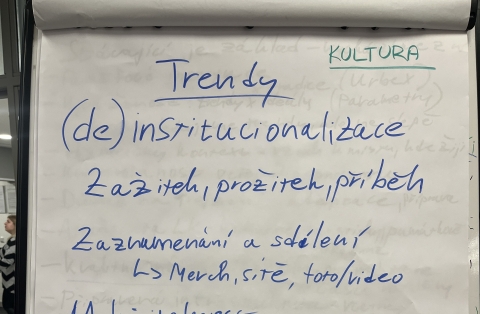 KULTURA
Trendy
(de)institucionalizace
Zážitek, prožitek, příběh
Zaznamenání a sdílení
↳ Merch, sítě, foto/video